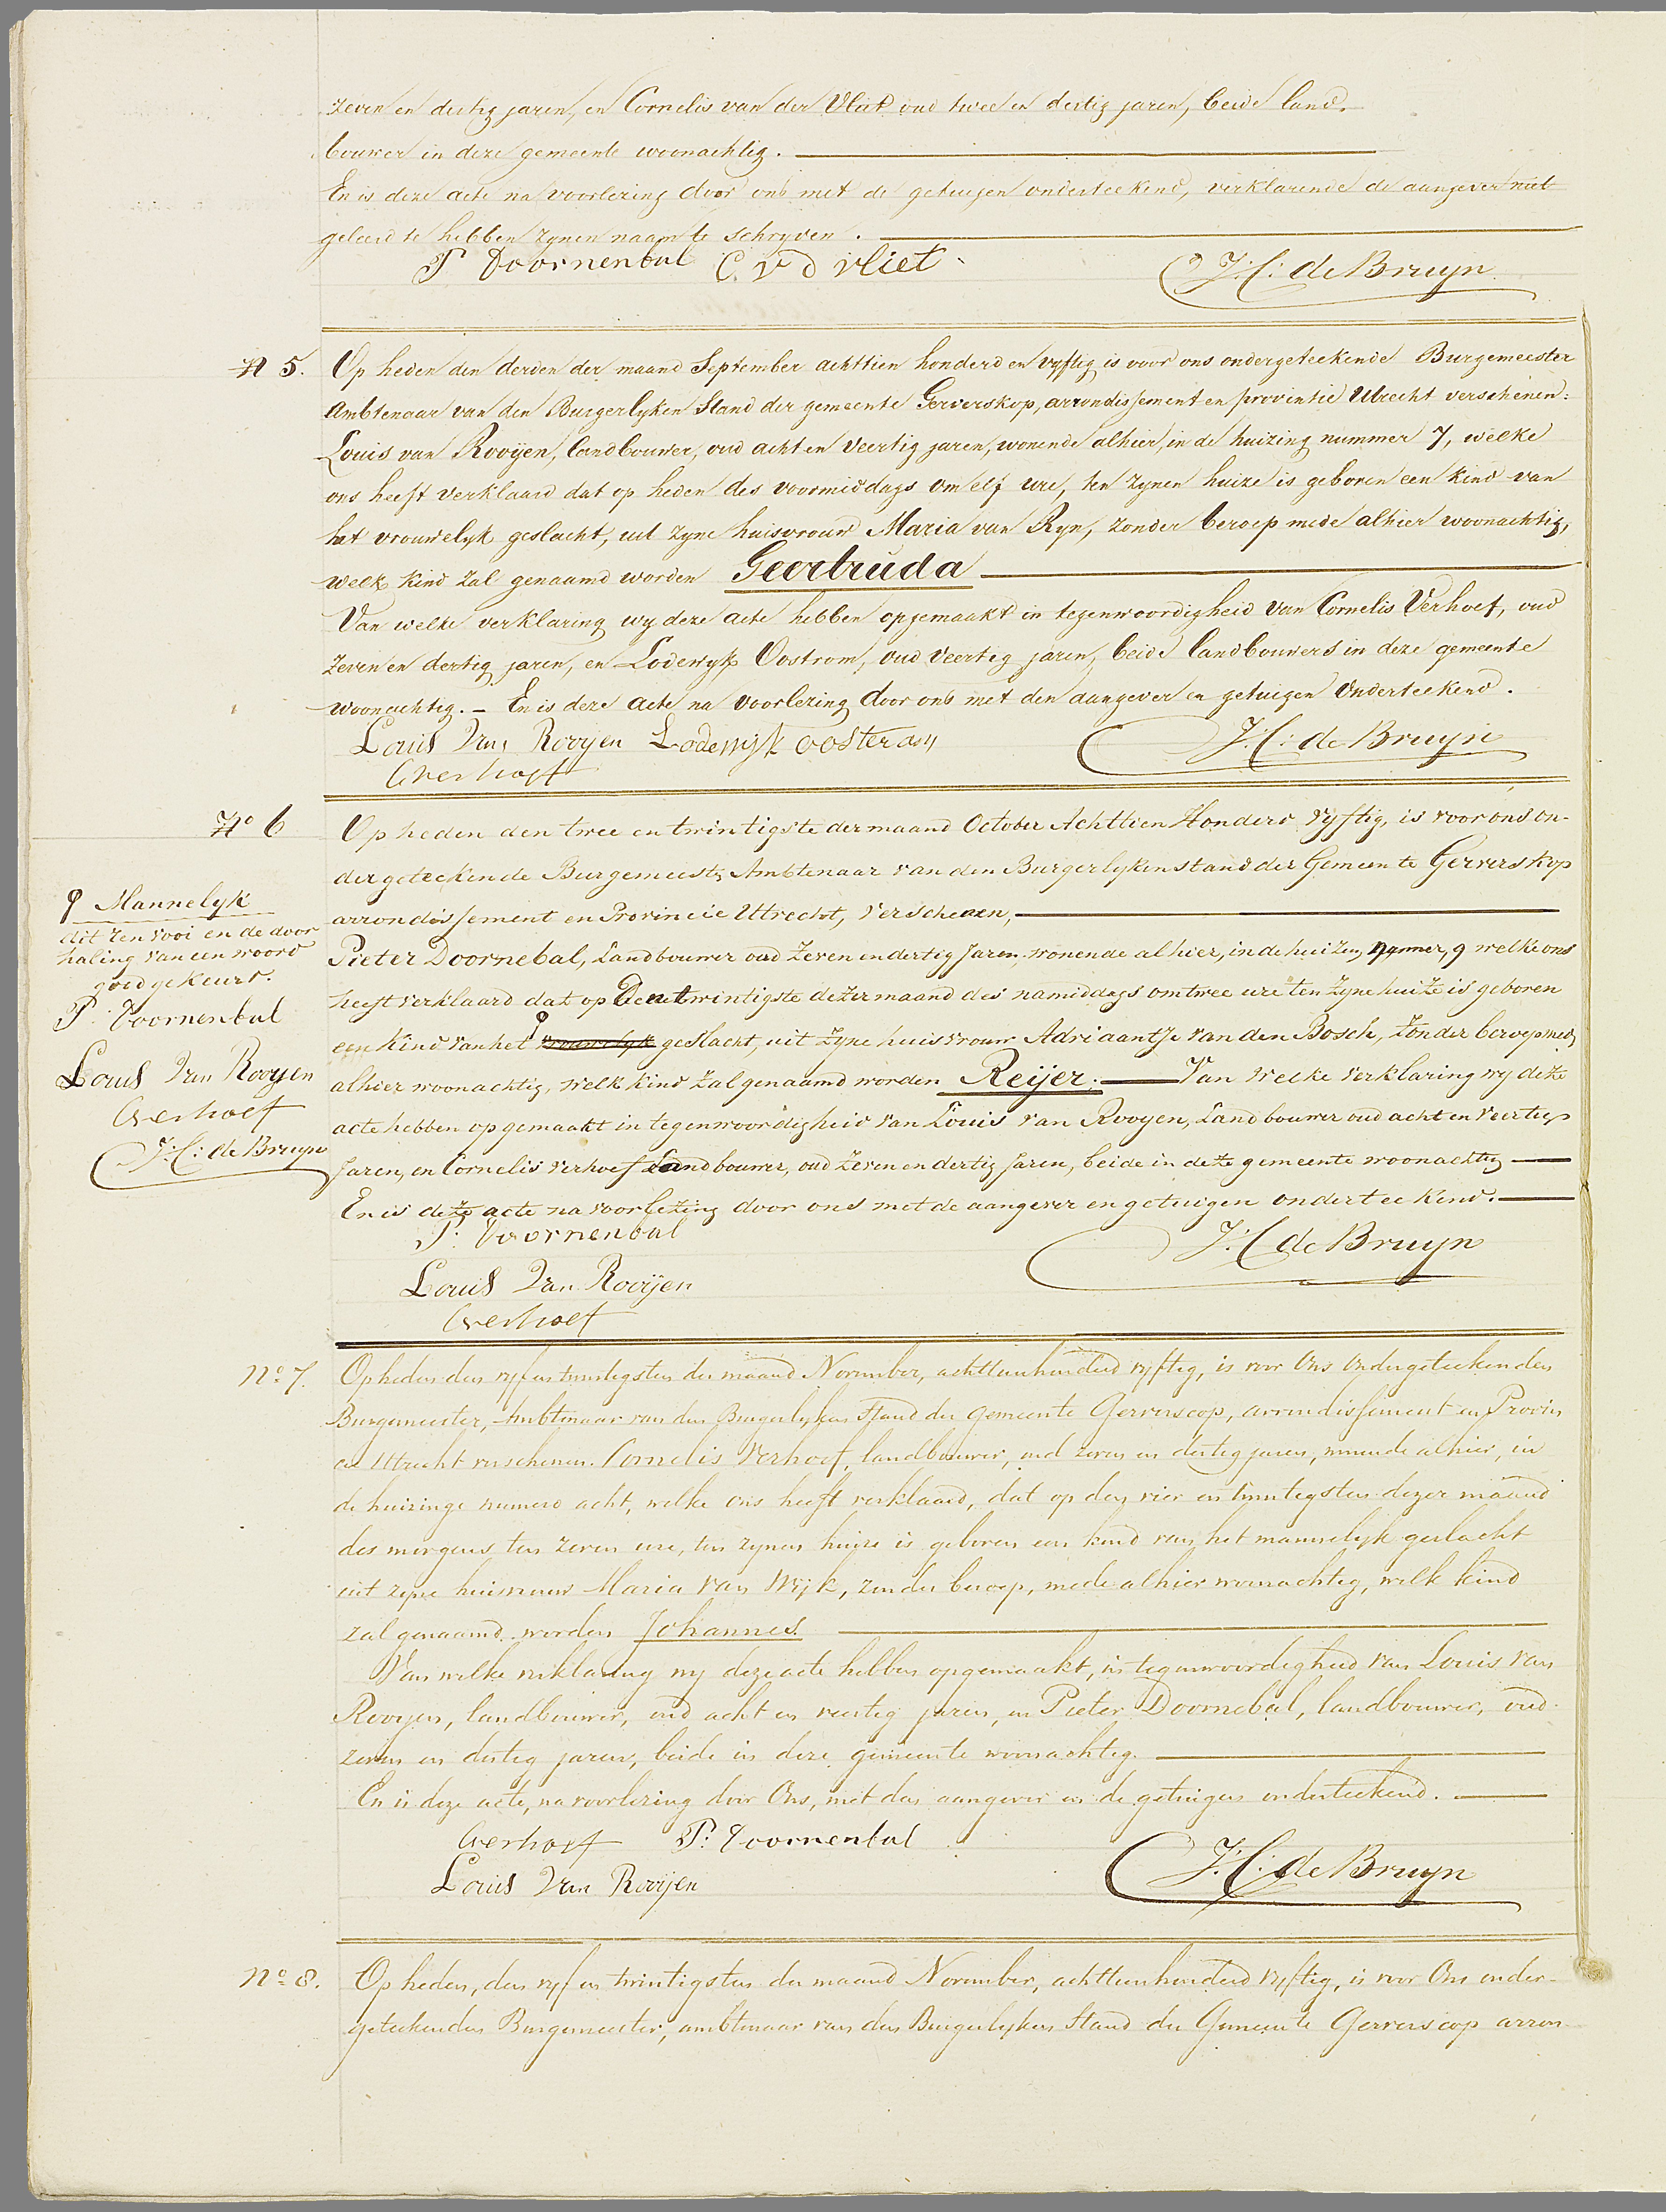 zeven en dertig jaren, en Cornelis van der Vliet oud twee en dertig jaren, beide land.
bouwer in deze gemeente woonachtig.
En is deze acte na voorlezing door ons met de getuigen onderteekend, verklarende de aangever niet
geleerd te hebben zynen naam te schryven.
P Doornenbal C. v d vliet
J: C: de Bruyn
N 5.
Op heden den derden der maand September achttien honderd en vyftig is voor ons ondergeteekende Burgemeester
Ambtenaar van den Burgerlyken Stand der gemeente Gerverskop, arrondissement en provintie Utrecht verschenen:
Louis van Rooyen, landbouwer, oud acht en veertig jaren, wonende alhier, in de huizing nummer 7, welke
ons heeft verklaard dat op heden des voormiddags om elf ure, ten zynen huize is geboren een kind van
het vrouwelyk geslacht, uit zyne huisvrouw Maria van Ryn, zonder beroep mede alhier woonachtig,
welk kind zal genaamd worden Geertruda
Van welke verklaring wy deze acte hebben opgemaakt in tegenwoordigheid van Cornelis Verhoef, oud
zeven en dertig jaren, en Lodewyk Oostrom, oud veertig jaren, beide landbouwers in deze gemeente
woonachtig. - En is deze acte na voorlezing door ons met den aangever en getuigen onderteekend.
Louis Van Rooyen Lodewyk oosterom
J: C: de Bruyn
CVerhoef
No 6
Op heden den twee en twintigste der maand October Achttien Honderd Vyftig, is voor ons on-
der geteekende Burgemeestr Ambtenaar van den Burgerlyken stand der Gemeente Gerverskop
arrondissement en Provincie Uttrecht, Verschenen,
Pieter Doornebal, Landbouwer oud Zeven en dertig Jaren, wonende alhier, in de huizen nummer, 9 welke ons
heeft verklaard dat op Den twintigste dezer maand des namiddags om twee ure ten Zyne huize is geboren
een Kind van het vrouwelyk geslacht, uit Zyne huisvrouw Adriaantje van den Bosch, Zonder beroep mede
alhier woonachtig, welk kind zal genaamd worden Reijer. Van welke verklaring wy deze
acte hebben opgemaakt in tegenwoordigheid van Louis van Rooyen, Landbouwer oud acht en veertig
Jaren, en Cornelis Verhoef Landbouwer, oud zeven en dertig Jaren, beide in deze gemeente woonachtig
En is deze acte na voorlezing door ons met de aangever en getuigen onderteekend.
P: Doornenbal
J: C de Bruyn
Louis Van Rooijen
CVerhoef
Mannelyk
dit Renvooi en de door
haling van een woord
goedgekeurd.
P: Doornenbal
Louis Van Rooyen
CVerhoef
J: C: de Bruyn
No 7.
Op heden den vyf en twintigsten der maand November, achttienhonderd vyftig, is voor Ons Ondergeteekenden
Burgemeester, Ambtenaar van den Burgerlyken Stand der Gemeente Gerverscop, arrondissement en Provin
cie Uttrecht verschenen. Cornelis Verhoef, landbouwer, oud zeven en dertig jaren, wonende alhier, in
de huizinge numero acht, welke ons heeft verklaard, dat op den vier en twintigsten dezer maand
des morgens ten zeven ure, ten zynen huize is geboren een kind van het mannelyk geslacht
uit zyne huisvrouw Maria van Wijk, zonder beroep, mede alhier woonachtig, welk kind
zal genaamd worden Johannes.
Van welke verklaring wy deze acte hebben opgemaakt, in tegenwoordigheid van Louis van
Rooyen, landbouwer, oud acht en veertig jaren, en Pieter Doornebal, landbouwer, oud
zeven en dertig jaren, beide in deze gemeente woonachtig.
En is deze acte, na voorlezing door Ons, met den aangever en de getuigen onderteekend.
CVerhoef P: Doornenbal
J: C: de Bruyn
Louis Van Rooijen
No 8.
Op heden, den vyf en twintigsten der maand November, achttienhonderd vyftig, is voor Ons onder-
geteekenden Burgemeester, ambtenaar van den Burgerlyken Stand der Gemeente Gerverscop arron